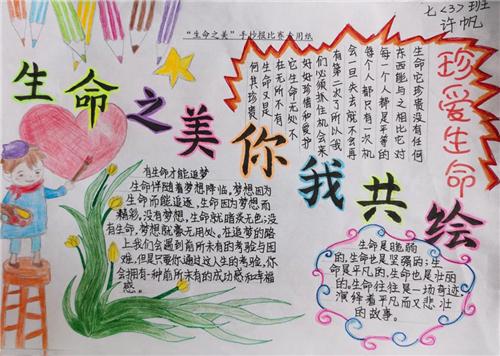 七〈3〉班
许帆
"生命之美"手抄报比赛专用纸
生命之美你我共绘
珍爱生命
生命它珍贵没有任何
东西能与之相比它对
每一个人都是平等的
每个人都只有一次机
会一旦失去就不会再
有第二次了所以我
们必须抓住机会来
好好珍惜和爱护
它生命无处不
在无所不有
生命又是
何其珍贵
有生命才能追梦
生命伴随着梦想降临,梦想因为
生命而能追逐,生命因为梦想而
精彩,没有梦想,生命就暗淡无色;没
有生命,梦想就毫无用处。在追梦的路
上我们会遇到前所未有的考验与困
难,但是只要你通过这人生的考验,你
会拥有一种前所未有的成功感和幸福
感。
生命是脆弱
的,生命也是坚强的;生
命是平凡的,生命也是壮丽
的,生命往往是一场奇迹
演绎着平凡而又悲壮
的故事。